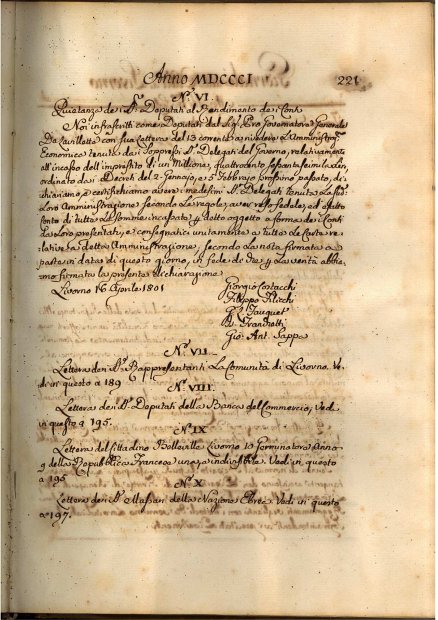 Anno MDCCCI 221
N.º VI.
Quietanza dei SS.ri Deputati al Rendimento dei Conti
Noi infrascritti come Deputati dal Sig.re Governatore Generale
De Lavillette con sua Lettera del 13 corrente a rivedere l'Amministraz.e
Economica tenuta dai Soppressi SS.ri Delegati del Governo, relativamente
all'incasso dell'imprestito di un Millione, quattrocento sessantaseimila
ordinato dai Decreti del 2 Gennajo, e 5 Febbrajo prossimo passato, di-
chiariamo, e certifichiamo avere i medesimi SS.ri Delegati tenuta la
Loro Amministrazione secondo le regole, aver reso fedele, ed esatto
conto di tutte le somme incassate detto oggetto a forma dei Conti
da loro presentati, e consegnatici unitamente a tutte le Carte re-
lative a detta Amministrazione, secondo la nota firmata a
parte in data di questo giorno, in fede di che la verità abbia-
mo firmato la presente dichiarazione
Livorno 16 Aprile 1801 Giorgio Costacchi
Filippo Filicchi
Gouguet
Franchetti
Gio: Ant. Sappa
N.º VII.
Lettera dei SS.ri Rappresentanti la Comunità di Livorno. Ve-
di in questo a 189
N.º VIII.
Lettera dei SS.ri Deputati della Banca del Commercio, Vedi
in questo a 195.
N.º IX
Lettera del Cittadino Belleville Livorno 10 Germinatore Anno
9 della Repubblica Francese una, e indivisibile. Vedi in questo
a 196
N.º X
Lettera dei SS.ri Massari della Nazione Ebrea. Vedi in questo
a 197.